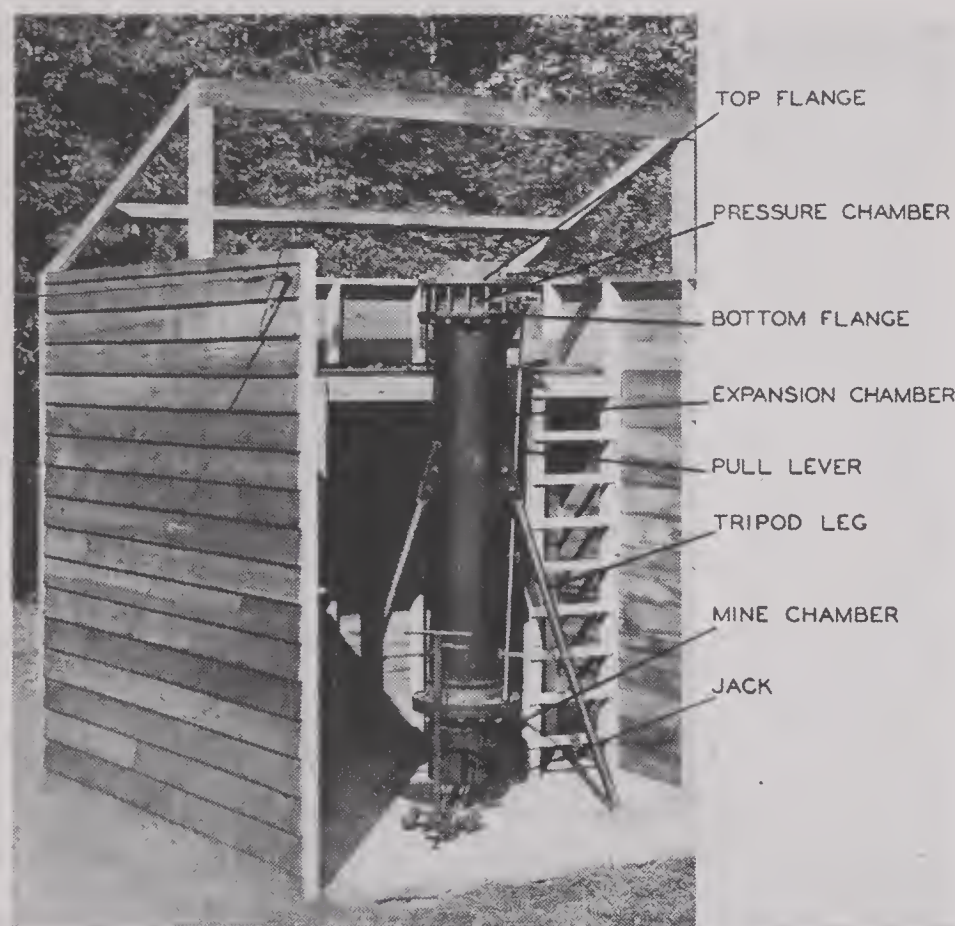 TOP FLANGE
PRESSURE CHAMBER
BOTTOM FLANGE
EXPANSION CHAMBER
PULL LEVER
TRIPOD LEG
MINE CHAMBER
JACK